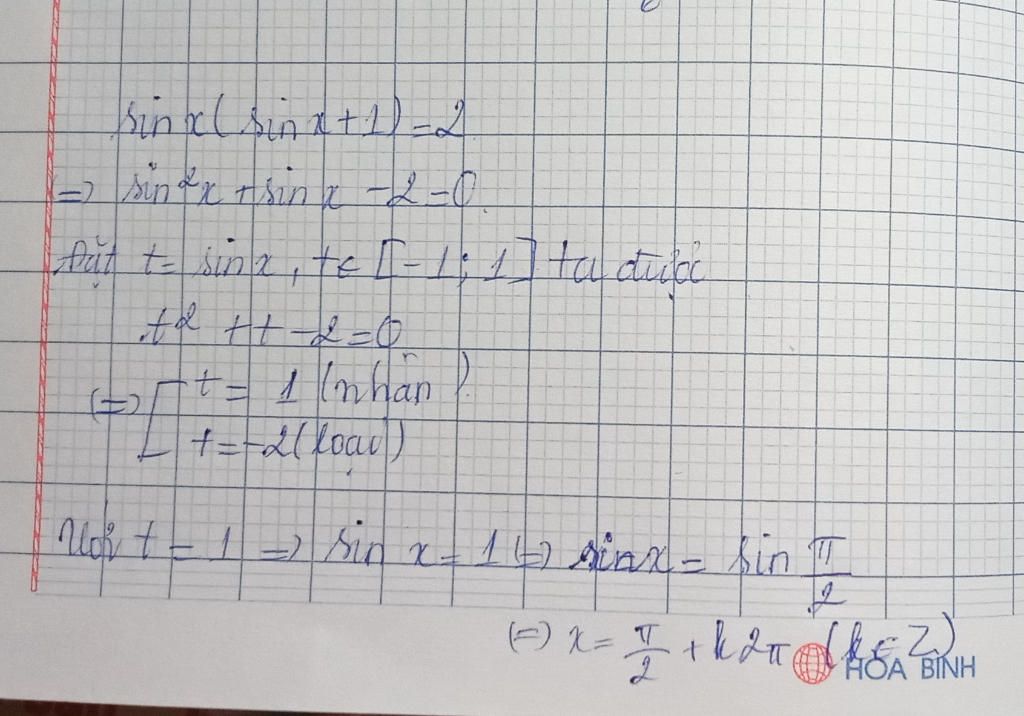 sin x ( sin x + 1 ) = 2
(=) sin²x + sin x - 2 = 0.
Đặt t = sin x, t ∈ [-1; 1] ta được
t² + t - 2 = 0
(=) [ t = 1 (nhận)
t = -2 (loại)
Với t = 1 => sin x = 1 (=) sin x = sin π/2
(=) x = π/2 + k2π (k ∈ Z)
HOA BINH